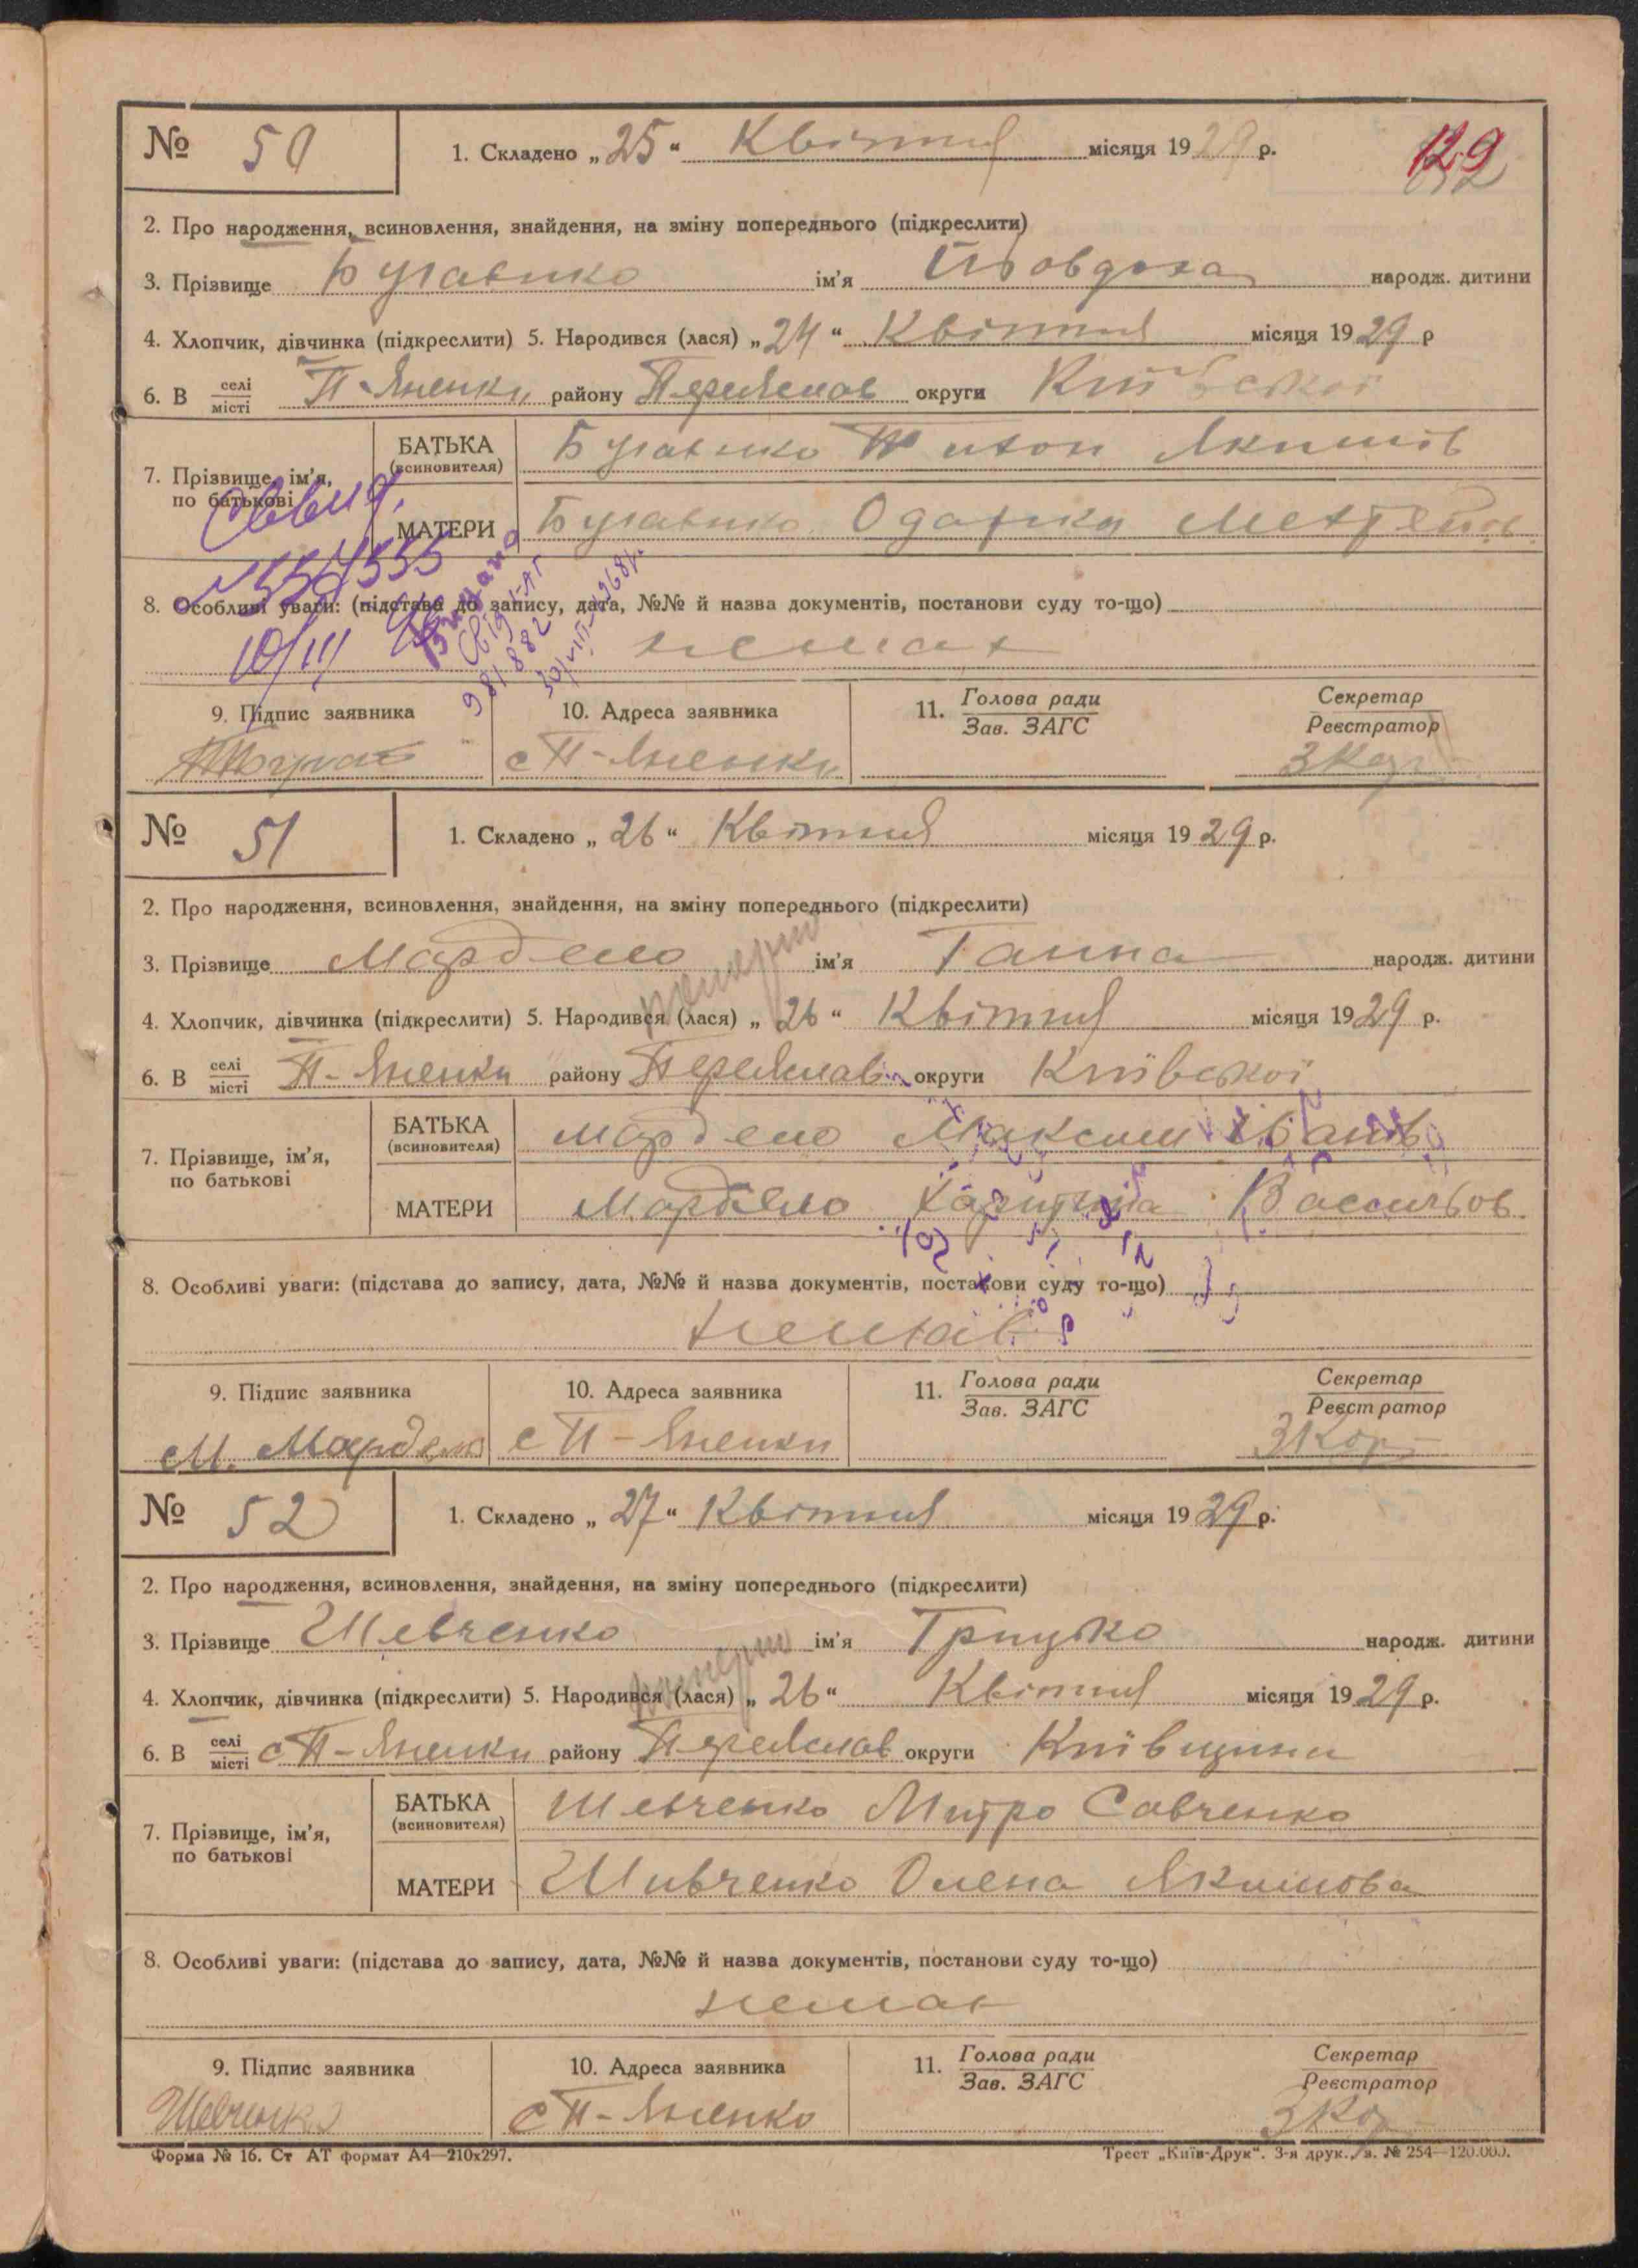 № 50 1. Складено „25“ Квітня місяця 1929 р. 129
2. Про народження, всиновлення, знайдення, на зміну попереднього (підкреслити)
3. Прізвище ім'я народж. дитини
4. Хлопчик, дівчинка (підкреслити) 5. Народився (лася) „24“ Квітня місяця 1929 р
6. В селі місті П-Яненки району Переяслав округи Київської
7. Прізвище, ім'я, по батькові
БАТЬКА (всиновителя) Якимів
МАТЕРИ Одарка
Свид.
8. Особливі уваги: (підстава до запису, дата, №№ й назва документів, постанови суду то-що)
немає
10/III
Видано
981882
9. Підпис заявника 10. Адреса заявника 11. Голова ради Зав. ЗАГС Секретар Реєстратор
с П-Яненки ЗКор
№ 51 1. Складено „26“ Квітня місяця 1929 р.
2. Про народження, всиновлення, знайдення, на зміну попереднього (підкреслити)
3. Прізвище Мардело ім'я Ганна народж. дитини
померло
4. Хлопчик, дівчинка (підкреслити) 5. Народився (лася) „26“ Квітня місяця 1929 р.
6. В селі місті П-Яненки району Переяслав округи Київської
7. Прізвище, ім'я, по батькові
БАТЬКА (всиновителя) Мардело Максим Іванів
МАТЕРИ Мардело Харитина Васильов
8. Особливі уваги: (підстава до запису, дата, №№ й назва документів, постанови суду то-що)
немає
9. Підпис заявника 10. Адреса заявника 11. Голова ради Зав. ЗАГС Секретар Реєстратор
М. Мардело с П-Яненки ЗКор
№ 52 1. Складено „27“ Квітня місяця 1929 р.
2. Про народження, всиновлення, знайдення, на зміну попереднього (підкреслити)
3. Прізвище Шевченко ім'я Грицько народж. дитини
померло
4. Хлопчик, дівчинка (підкреслити) 5. Народився (лася) „26“ Квітня місяця 1929 р.
6. В селі місті с П-Яненки району Переяслав округи Київщини
7. Прізвище, ім'я, по батькові
БАТЬКА (всиновителя) Шевченко Митро Савченко
МАТЕРИ Шивченко Олена Якимова
8. Особливі уваги: (підстава до запису, дата, №№ й назва документів, постанови суду то-що)
немає
9. Підпис заявника 10. Адреса заявника 11. Голова ради Зав. ЗАГС Секретар Реєстратор
Шевченко с П-Яненко ЗКор
Форма № 16. Ст АТ формат А4—210x297. Трест „Київ-Друк“. 3-я друк. № 254—120.000.